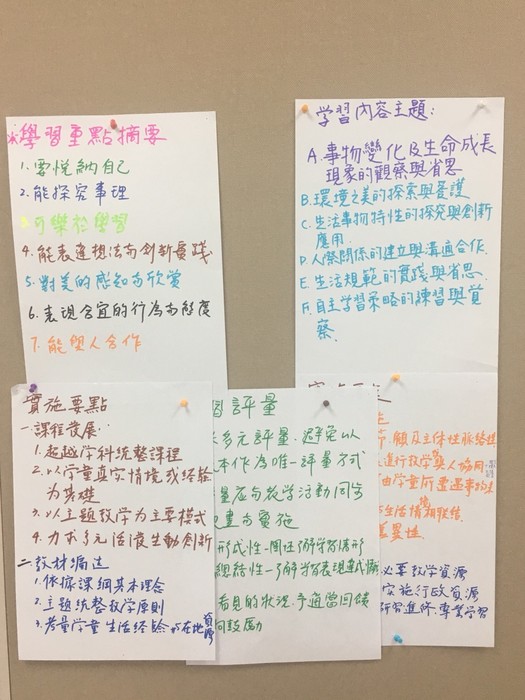 *學習重點摘要
1.要悅納自己
2.能探究事理
3.可樂於學習
4.能表達想法與創新實踐
5.對美的感知與欣賞
6.表現合宜的行為與態度
7.能與人合作
学習內容主題:
A.事物變化及生命成長
現象的觀察與省思
B.環境之美的探索與愛護
C.生活事物特性的探究與創新
應用.
D.人際關係的建立與溝通合作.
E.生活規範的實踐與省思.
F.自主學習策略的練習與覺
察.
實施要點
一.課程發展:
1.超越学科統整課程
2.以学童真实情境或经验
為基礎
3.以主題教学為主要模式
4.力求多元活潑生動創新
二.教材編選
1.依據課綱基本理念
2.主題統整教学原则
3.考量学童生活经驗或在地資源
習評量
多元評量.避免以
本作為唯一評量方式
量应与教学活動同步
畫与實施
形式性-間性了解学習情形
總結性-了解学習表現達成
看見的狀況.予適當回饋
鼓勵
節.顧及主体性脈絡性
進行教学與人協用
由学童所遭遇事物
与生活情境联结.
差異性.
必要教学資源
实施行政資源
研究進修.專業学習